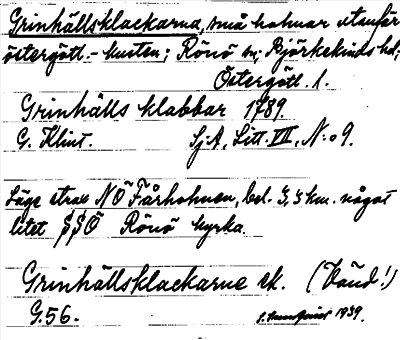 Grinhällsklackarna, små holmar utanför
östergötl.-kusten; Rönö sn; Björkekinds hd;
Östergötl. l.
Grinhälls klabbar 1789.
G. Klint. Sj:A, Litt. VII, N:o 9.
Läge strax NÖ Fårholmen, bel. 3,5 km. något
litet SSÖ Rönö kyrka.
Grinhällsklackarne ek. (Känd!)
G.56. 1939.